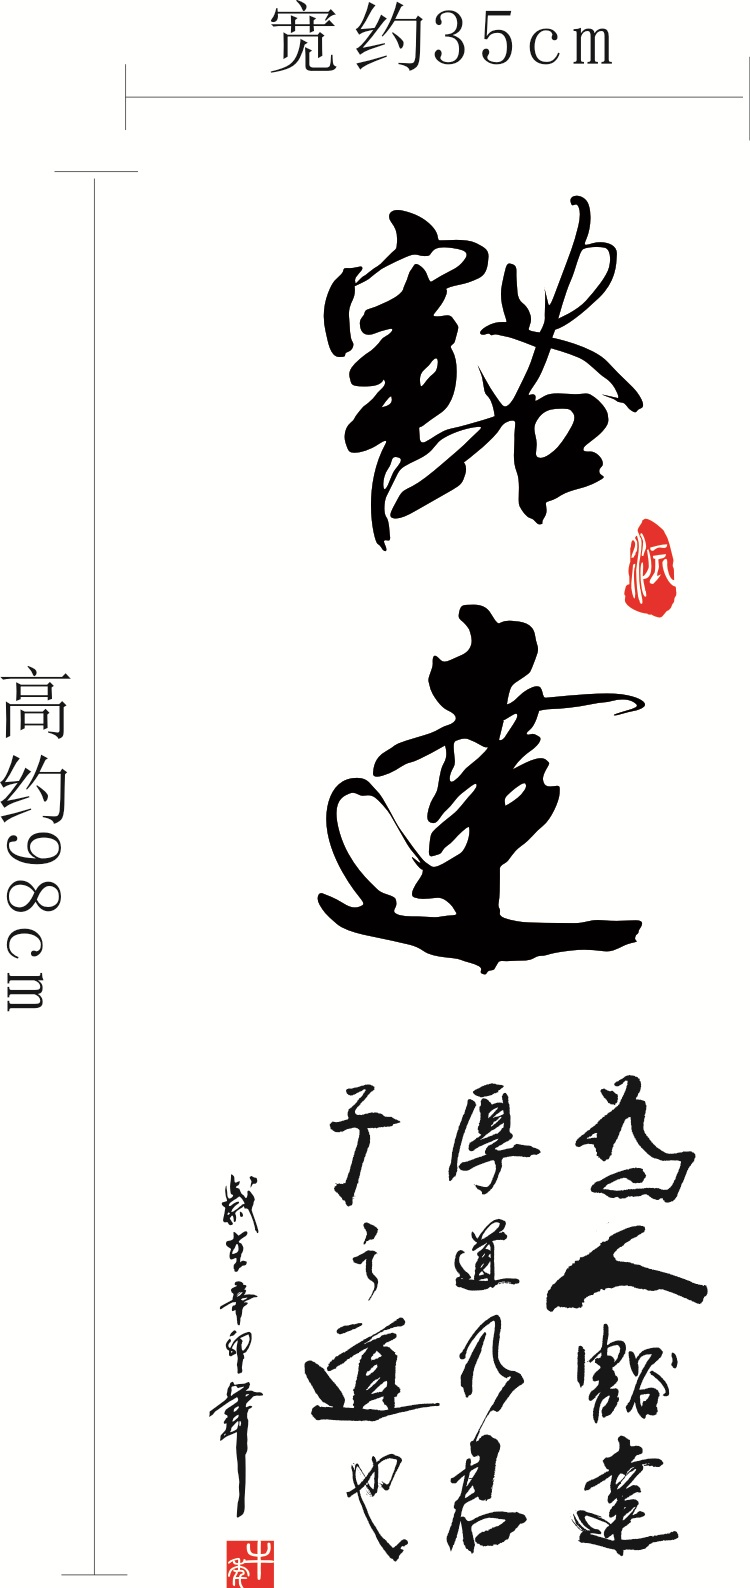 宽约35cm
高约98cm
豁达
为人豁达
厚道乃君
子之道也
岁在辛卯年